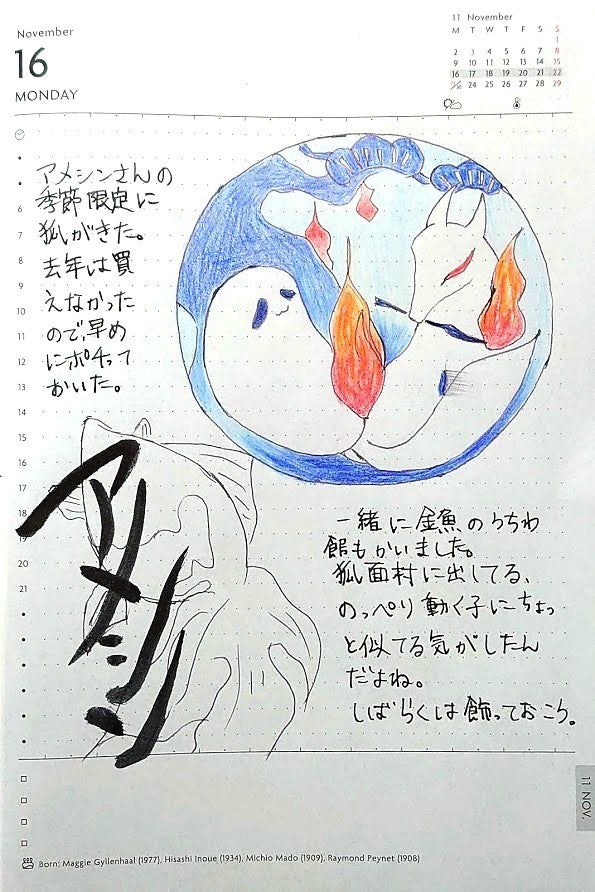 November
16
MONDAY
11 November
M T W T F S S
1
2 3 4 5 6 7 8
9 10 11 12 13 14 15
16 17 18 19 20 21 22
23/30 24 25 26 27 28 29
アメシンさんの
季節限定に
狐がきた。
去年は買
えなかった
ので、早め
にポチって
おいた。
6
7
8
9
10
11
12
13
14
15
16
17
18
19
20
21
アメシン
一緒に金魚のうちわ
飴もかいました。
狐面村に出してる、
のっぺり動く子にちょっ
と似てる気がしたん
だよね。
しばらくは飾っておこう。
11 NOV.
Born: Maggie Gyllenhaal (1977), Hisashi Inoue (1934), Michio Mado (1909), Raymond Peynet (1908)